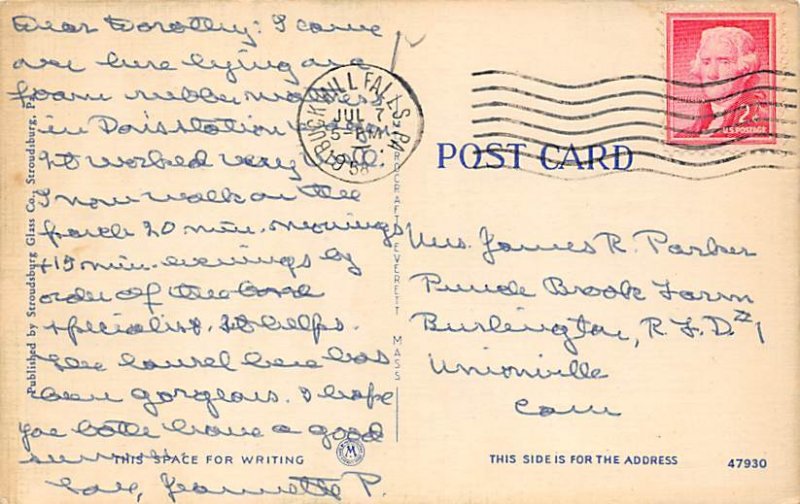 Dear Dorothy: I came
are here lying on a
foam rubber mattress
in Dad's station
It worked very well.
I now walk on the
porch 20 min. mornings
+ 15 min. evenings by
order of the bone
specialist. It helps.
The laurel here has
been gorgeous. I hope
you both have a good
summer
Love, Jeannette P.
THIS SPACE FOR WRITING
Published by Stroudsburg Glass Co., Stroudsburg, Pa.
BUCK HILL FALLS, PA.
JUL 7
5 PM
1958
EVERETT MASS
2¢
U.S. POSTAGE
POST CARD
Mrs. James R. Parker
Brook Farm
Burlington, R.F.D. #1
Unionville
Conn
THIS SIDE IS FOR THE ADDRESS
47930